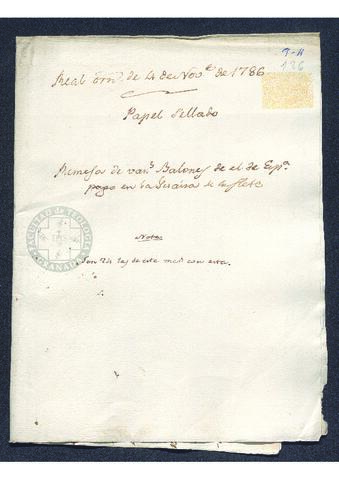 Real orn. de 4 de Nov.e de 1786
Papel Sellado
Remesa de var.s Balones de el de Esp.a
pago en la de su flete
Nota
Son 2 de este con esta.
FACULTAD DE TEOLOGIA
GRANADA
136